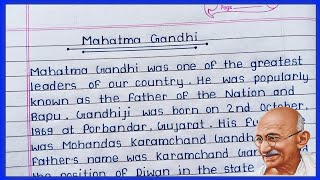 Page
Mahatma Gandhi
Mahatma Gandhi was one of the greatest
leaders of our country. He was popularly
known as the father of the Nation and
Bapu. Gandhiji was born on 2nd October,
1869 at Porbandar, Gujarat. His
was Mohandas Karamchand Gandh
father's name was Karamchand Gan
the position of Diwan in the state